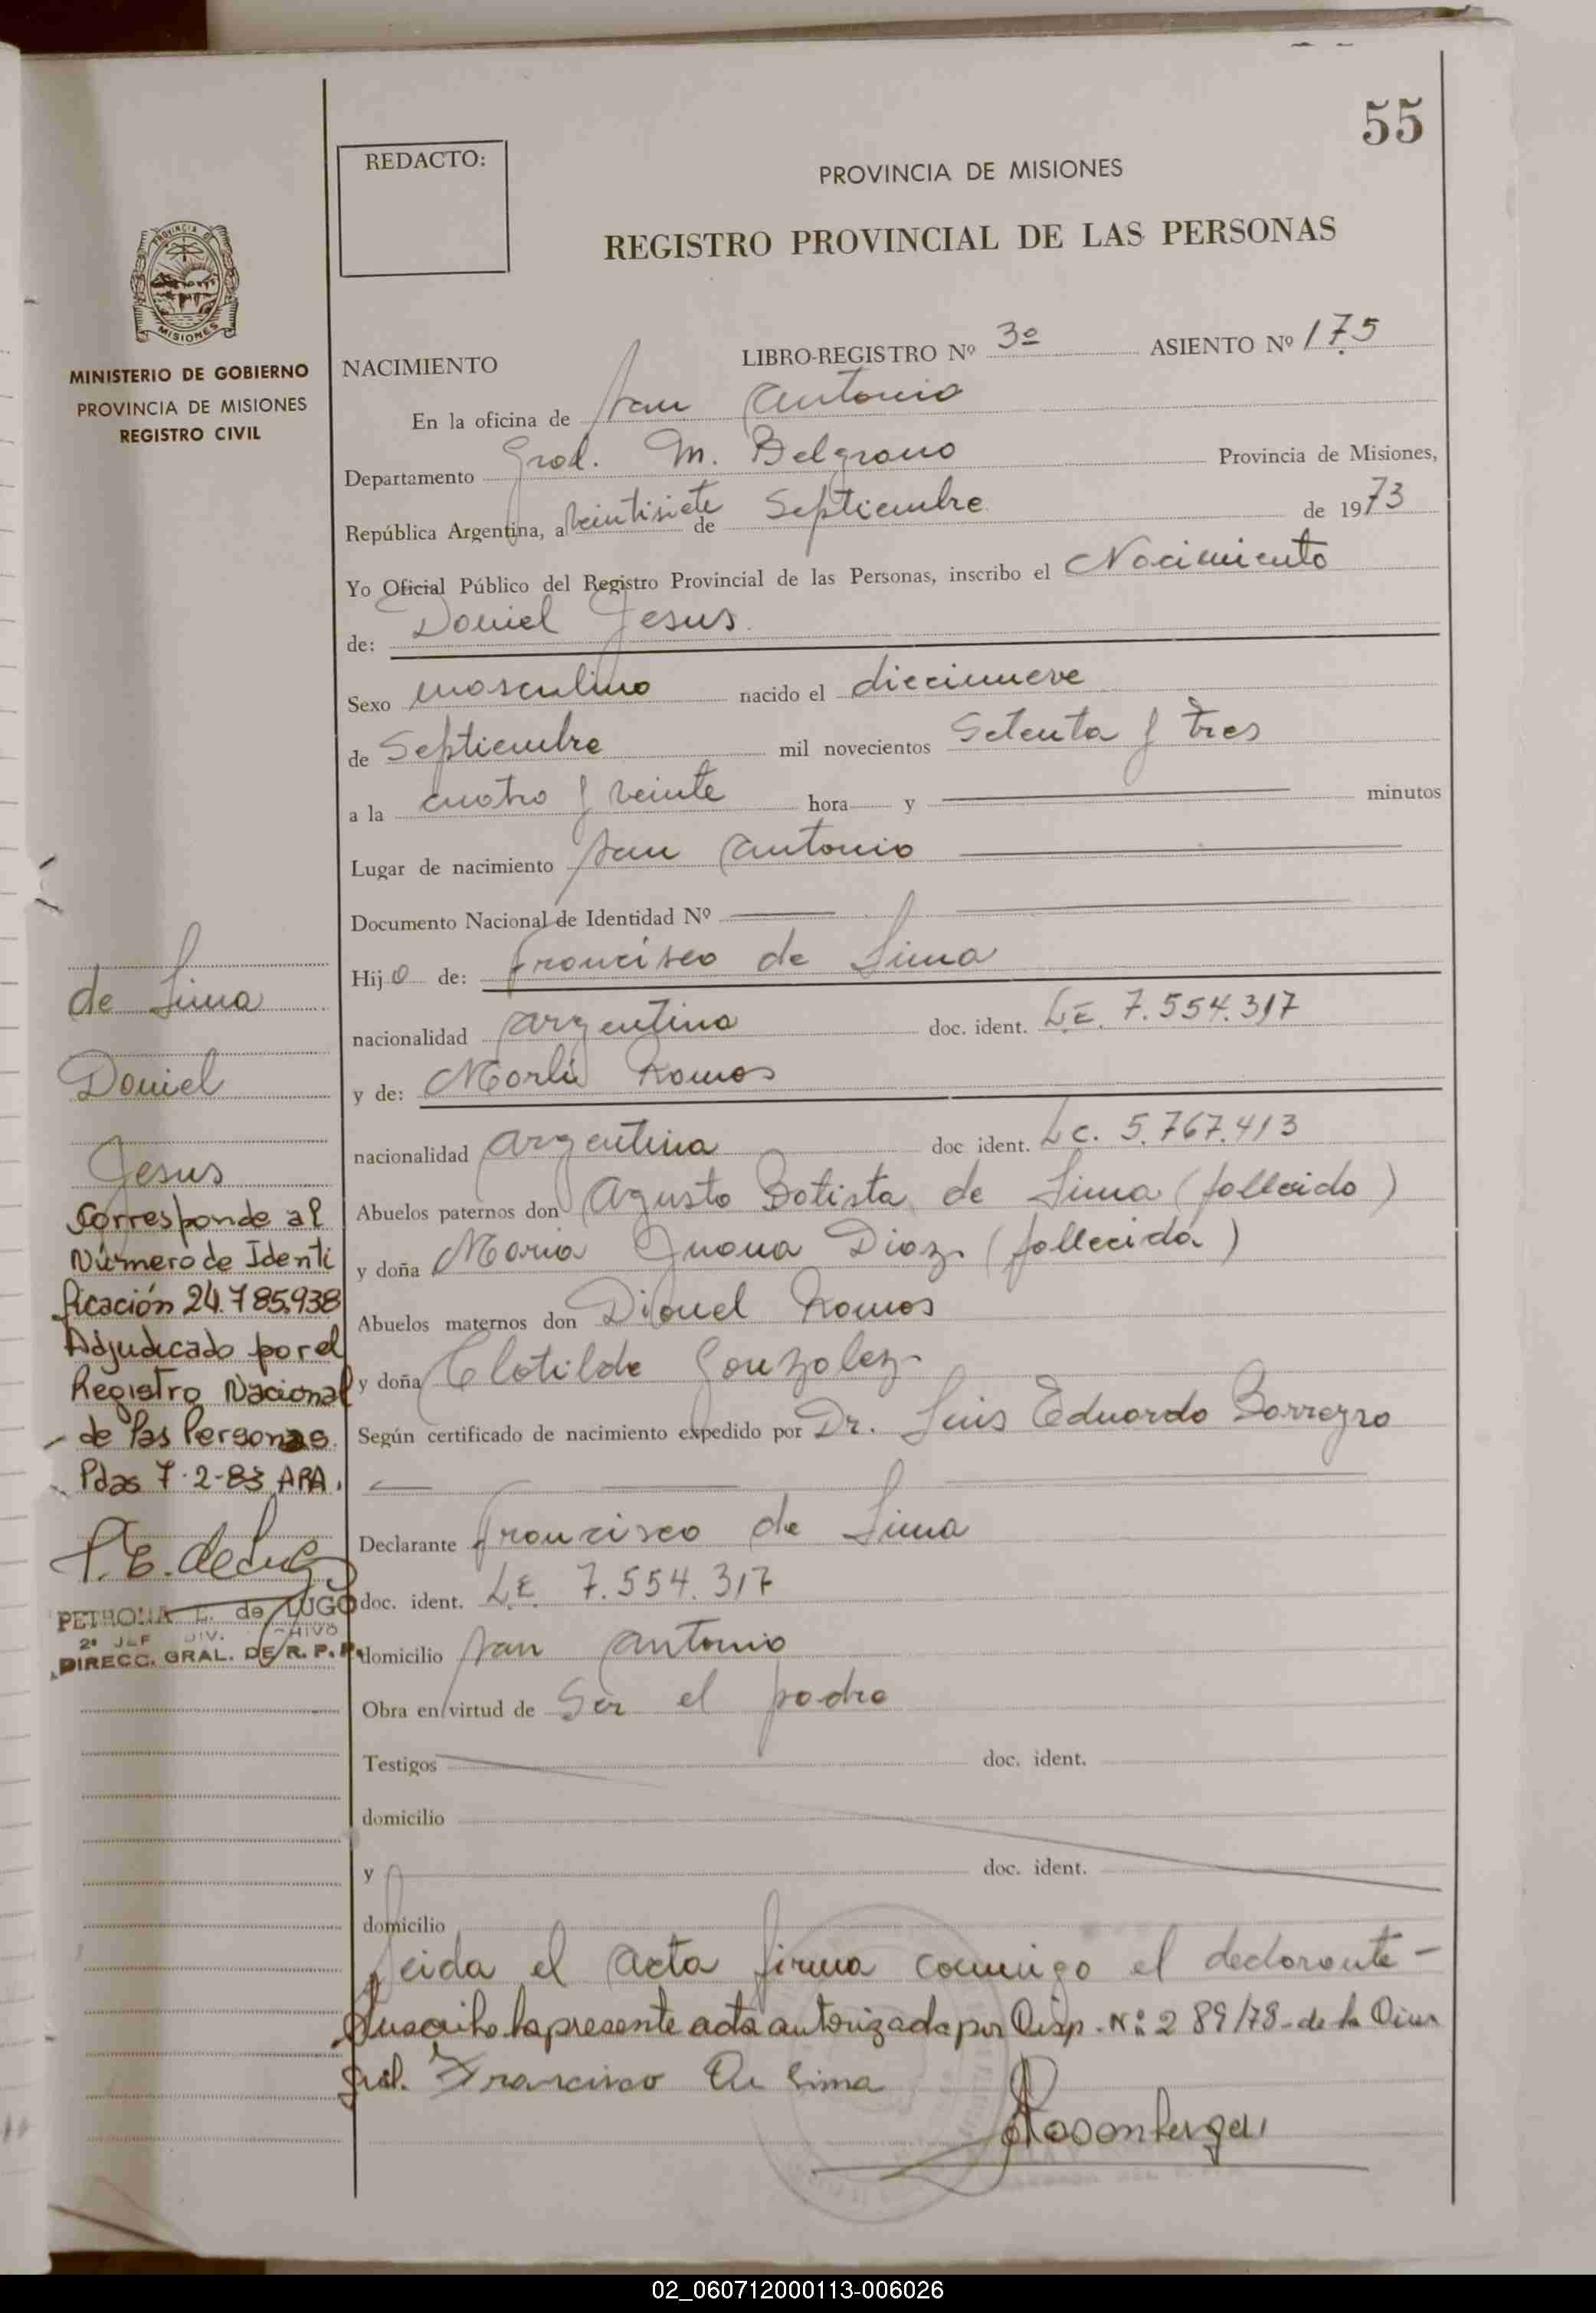 55
REDACTO:
PROVINCIA DE MISIONES
REGISTRO PROVINCIAL DE LAS PERSONAS
PROVINCIA DE
MISIONES
MINISTERIO DE GOBIERNO
PROVINCIA DE MISIONES
REGISTRO CIVIL
NACIMIENTO LIBRO-REGISTRO Nº 3º ASIENTO Nº 175
En la oficina de San Antonio
Departamento Gral. M. Belgrano Provincia de Misiones,
República Argentina, a veintisiete de Septiembre de 1973
Yo Oficial Público del Registro Provincial de las Personas, inscribo el Nacimiento
de: Daniel Jesus
Sexo masculino nacido el diecinueve
de Septiembre mil novecientos Setenta y tres
a la cuatro y veinte hora y minutos
Lugar de nacimiento San Antonio
Documento Nacional de Identidad Nº
Hijo de: Francisco de Lima
nacionalidad argentina doc. ident. L.E. 7.554.317
y de: Marli Ramos
nacionalidad argentina doc ident. L.C. 5.767.413
Abuelos paternos don Agusto Batista de Lima (fallecido)
y doña Maria Juana Diaz (fallecida)
Abuelos maternos don Ramos
y doña Clotilde Gonzalez
Según certificado de nacimiento expedido por Dr. Luis Eduardo
Declarante Francisco de Lima
doc. ident. L.E. 7.554.317
domicilio San Antonio
Obra en virtud de Ser el padre
Testigos doc. ident.
domicilio
y doc. ident.
domicilio
Leida el acta firma conmigo el declarante -
Suscribo la presente acta autorizada por Disp. Nº 289/78 - de la
Gral. Francisco De Lima
de Lima
Daniel
Jesus
Corresponde al
Número de Identi
ficación 24.785.938
Adjudicado por el
Registro Nacional
de las Personas.
Pdas 7-2-83 ARA.
PETRONA E. de LUGO
2º JEF DIV. ARCHIVO
DIRECC. GRAL. DE R. P. P.
02_060712000113-006026